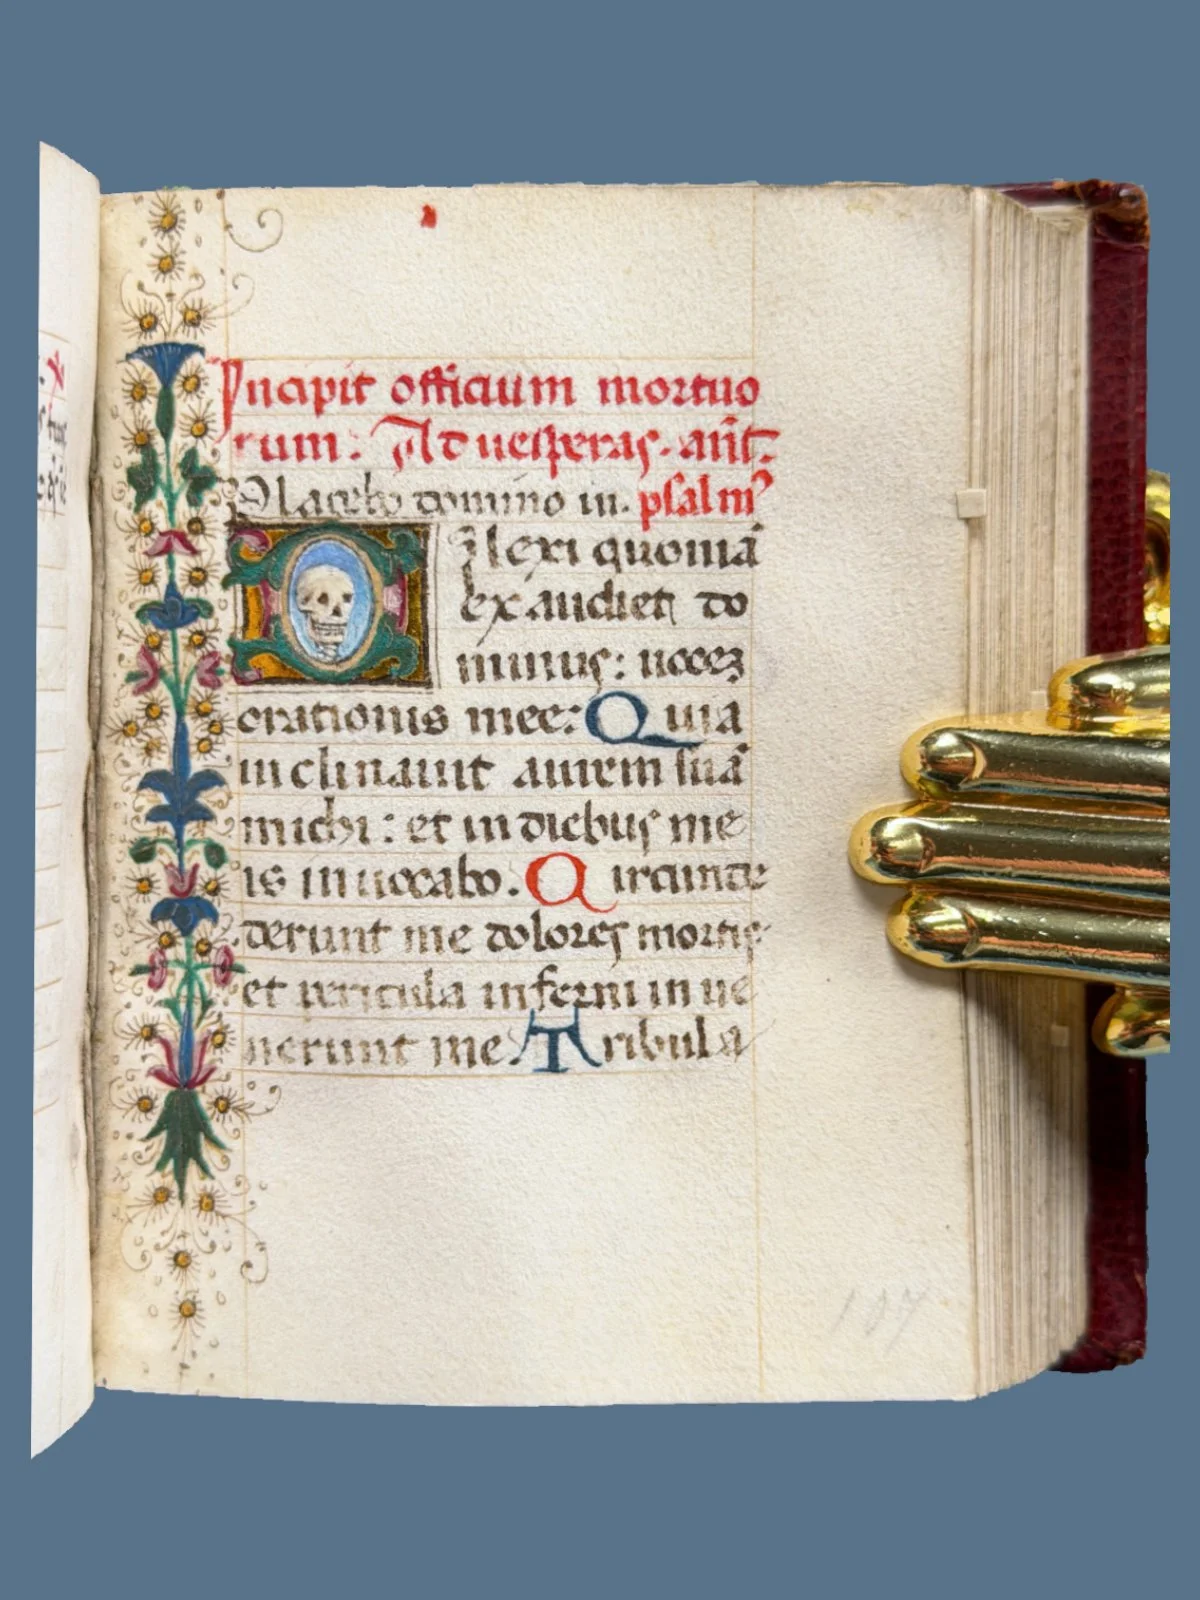 Incipit officium mortuo
rum. Ad uesperas. añt.
Placebo domino in. psalmꝰ
Dilexi quoniã
exaudiet do
minus: uocez
orationis mee: Quia
inclinauit aurem suã
michi: et in diebus me
is inuocabo. Circunde
derunt me dolores mortis
et pericula inferni inue
nerunt me. Tribula
107